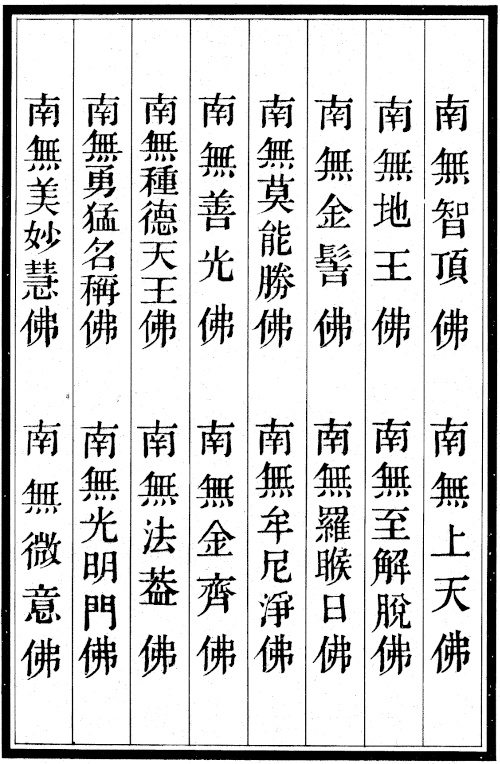 南無智頂佛 南無上天佛
南無地王佛 南無至解脫佛
南無金髻佛 南無羅睺日佛
南無莫能勝佛 南無牟尼淨佛
南無善光佛 南無金齊佛
南無種德天王佛 南無法葢佛
南無勇猛名稱佛 南無光明門佛
南無美妙慧佛 南無微意佛